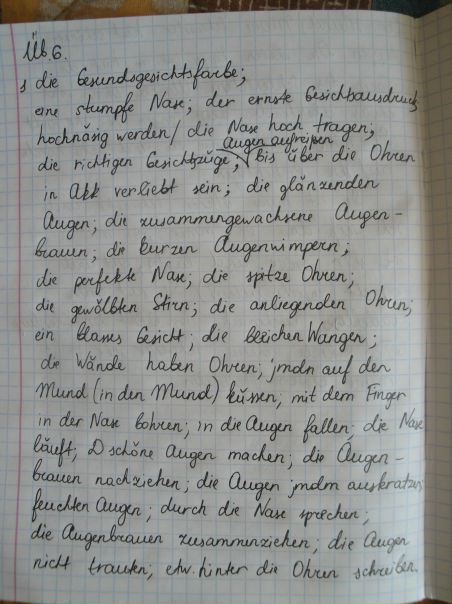 Üb 6.
s die Gesundsgesichtsfarbe;
eine stumpfe Nase; der ernste Gesichtsausdruck,
hochnäsig werden / die Nase hoch tragen;
Augen aufreißen
die richtigen Gesichtszüge; bis über die Ohren
in Akk verliebt sein; die glänzenden
Augen; die zusammengewachsene Augen-
brauen; die kurzen Augenwimpern;
die perfekte Nase; die spitze Ohren;
die gewölbten Stirn; die anliegenden Ohren;
ein blasses Gesicht; die bleichen Wangen;
die Wände haben Ohren; jmdn auf den
Mund (in den Mund) küssen; mit dem Finger
in der Nase bohren; in die Augen fallen; die Nase
läuft; D schöne Augen machen; die Augen-
brauen nachziehen; die Augen jmdm auskratzen;
feuchten Augen; durch die Nase sprechen;
die Augenbrauen zusammenziehen; die Augen
nicht trauen; etw. hinter die Ohren schreiben.